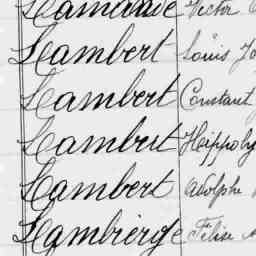 Lamarade Victor
Lambert Louis Jo
Lambert Constant
Lambert Hippoly
Lambert Adolphe
Lambierge Félise